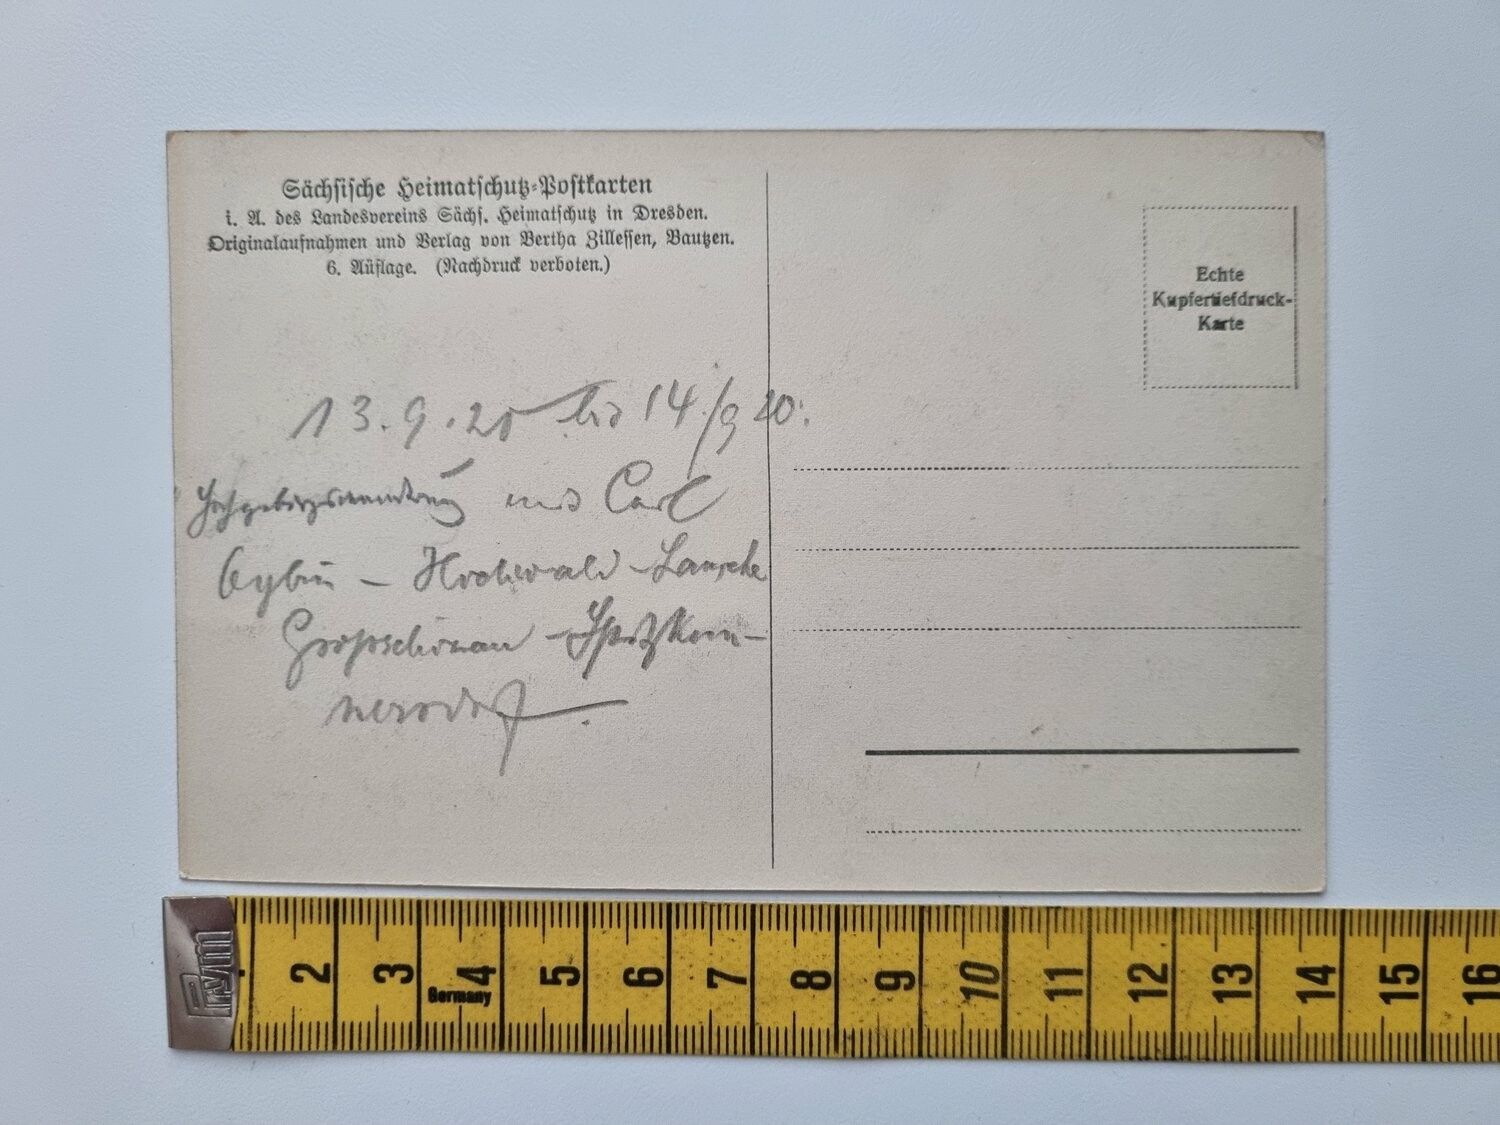 Sächsische Heimatschutz-Postkarten
i. A. des Landesvereins Sächs. Heimatschutz in Dresden.
Originalaufnahmen und Verlag von Bertha Zillessen, Bautzen.
6. Aüflage. (Nachdruck verboten.)
Echte
Kupfertiefdruck-
Karte
13.9.20 bis 14/9 20.
Hochgebirgswanderung mit Carl
Oybin – Hochwald – Lausche
Grossschönau – Spitzkun-
nersdorf.
Prym
2 3 4 5 6 7 8 9 10 11 12 13 14 15 16
Germany